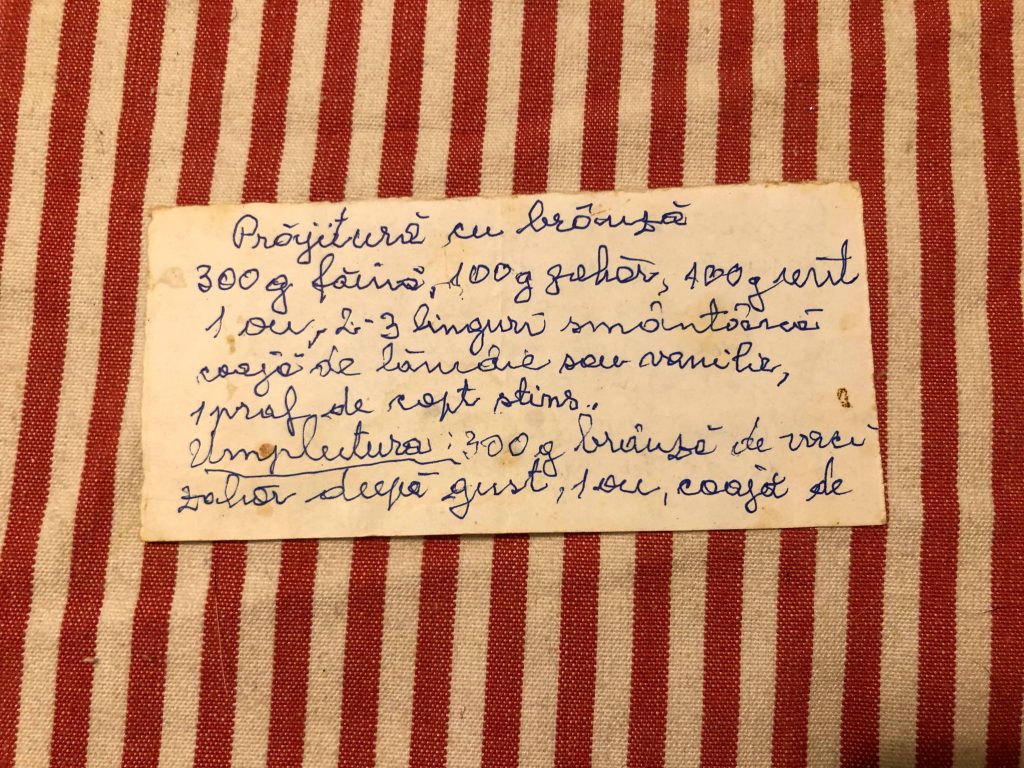 Prăjitură cu brânză
300g făină, 100g zahăr, 100g unt
1 ou, 2-3 linguri smântână
coajă de lămâie sau vanilie,
1 praf de copt stins.
Umplutura: 300g brânză de vaci
zahăr după gust, 1 ou, coajă de